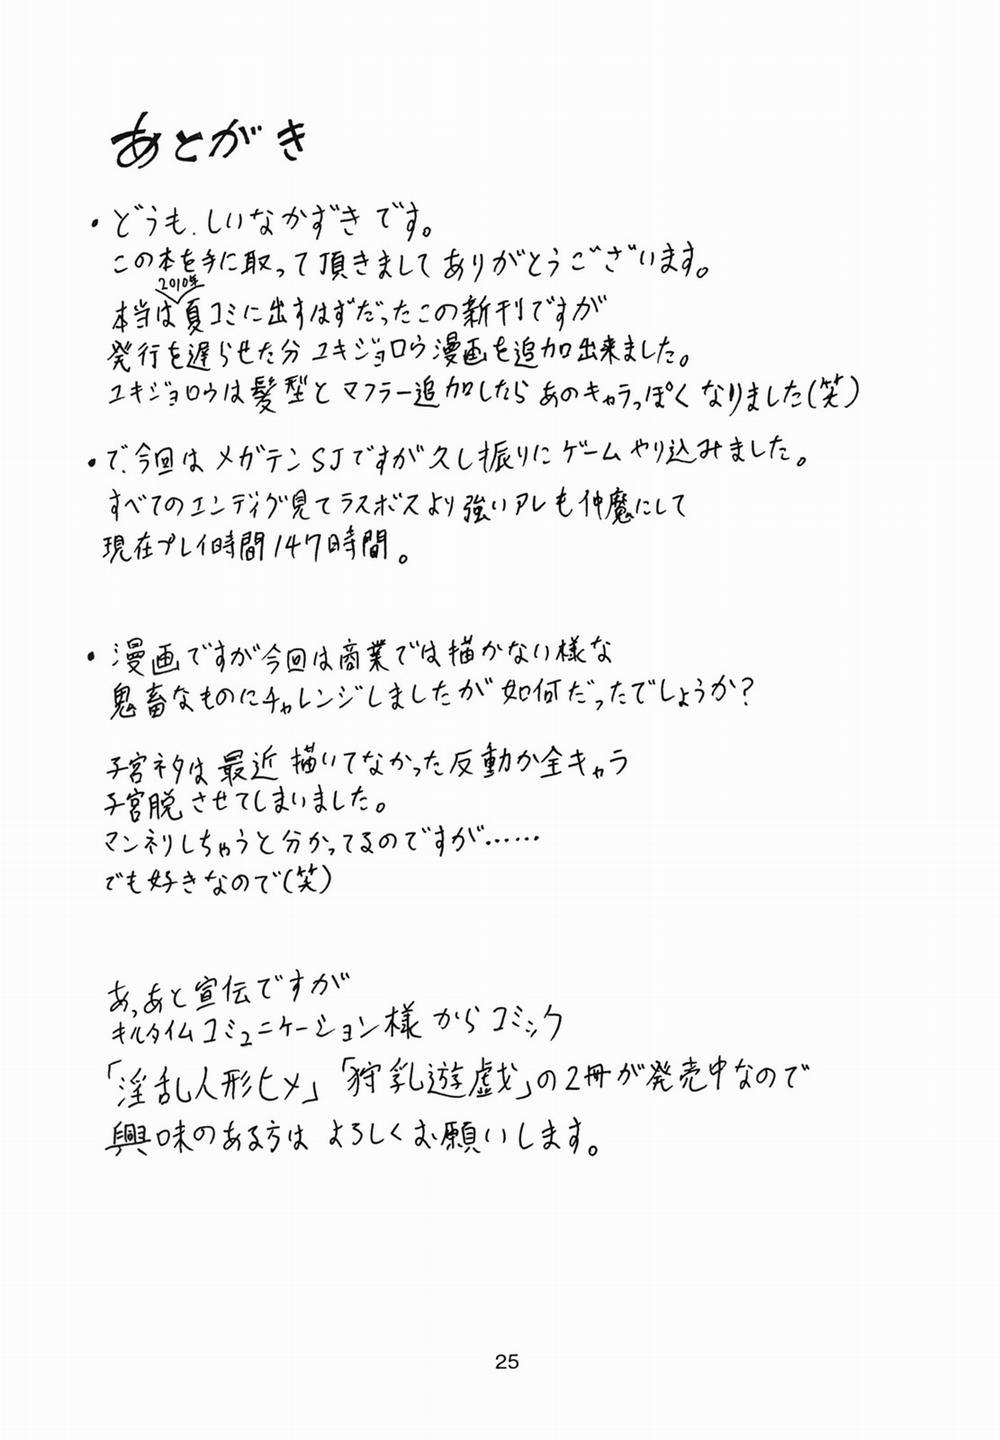 あとがき
・どうも、しいなかずきです。
この本を手に取って頂きましてありがとうございます。
2010年
本当は夏コミに出すはずだったこの新刊ですが
発行を遅らせた分 ユキジョロウ漫画を追加出来ました。
ユキジョロウは髪型とマフラー追加したらあのキャラっぽくなりました(笑)
・で、今回はメガテンSJですが久し振りにゲームやり込みました。
すべてのエンディグ見てラスボスより強いアレも仲魔にして
現在プレイ時間147時間。
・漫画ですが今回は商業では描かない様な
鬼畜なものにチャレンジしましたが如何だったでしょうか?
子宮ネタは最近描いてなかった反動か全キャラ
子宮脱させてしまいました。
マンネリしちゃうと分かってるのですが……
でも好きなので(笑)
あ、あと宣伝ですが
キルタイムコミュニケーション様からコミック
「淫乱人形ヒメ」「狩乳遊戯」の2冊が発売中なので
興味のある方はよろしくお願いします。
25